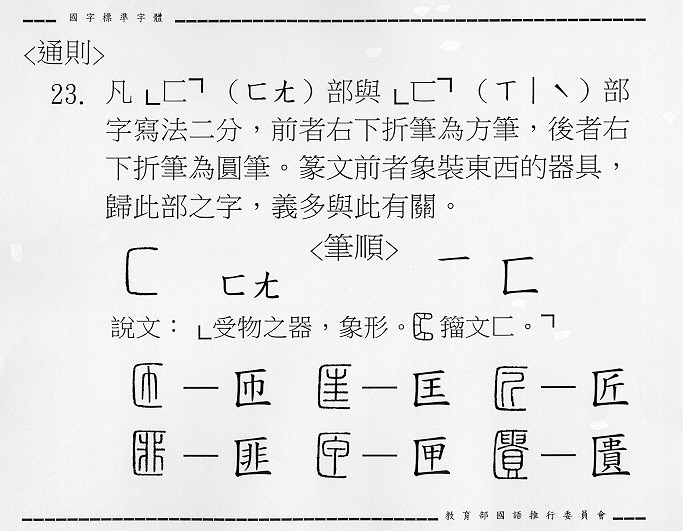 國字標準字體
<通則>
23. 凡「匚」（ㄈㄤ）部與「匸」（ㄒㄧˋ）部
字寫法二分，前者右下折筆為方筆，後者右
下折筆為圓筆。篆文前者象裝東西的器具，
歸此部之字，義多與此有關。
<筆順>
匚 ㄈㄤ 一 匚
說文：「受物之器，象形。籀文匚。」
匝—匝 匡—匡 匠—匠
匪—匪 匣—匣 匱—匱
教育部國語推行委員會